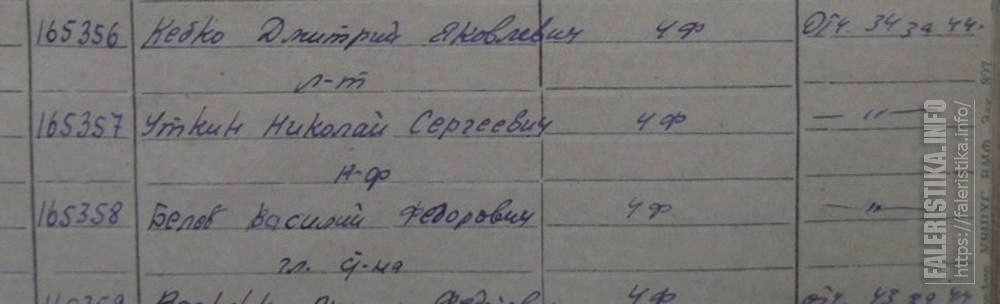 165356 Кебко Дмитрий Яковлевич ЧФ От4. 34 за 44.
л-т
165357 Уткин Николай Сергеевич ЧФ — " —
165358 Белов Василий Федорович ЧФ — " —
гл. ст-на
165359 ЧФ от4. 43 за 44
FALERISTIKA.INFO
https://faleristika.info/